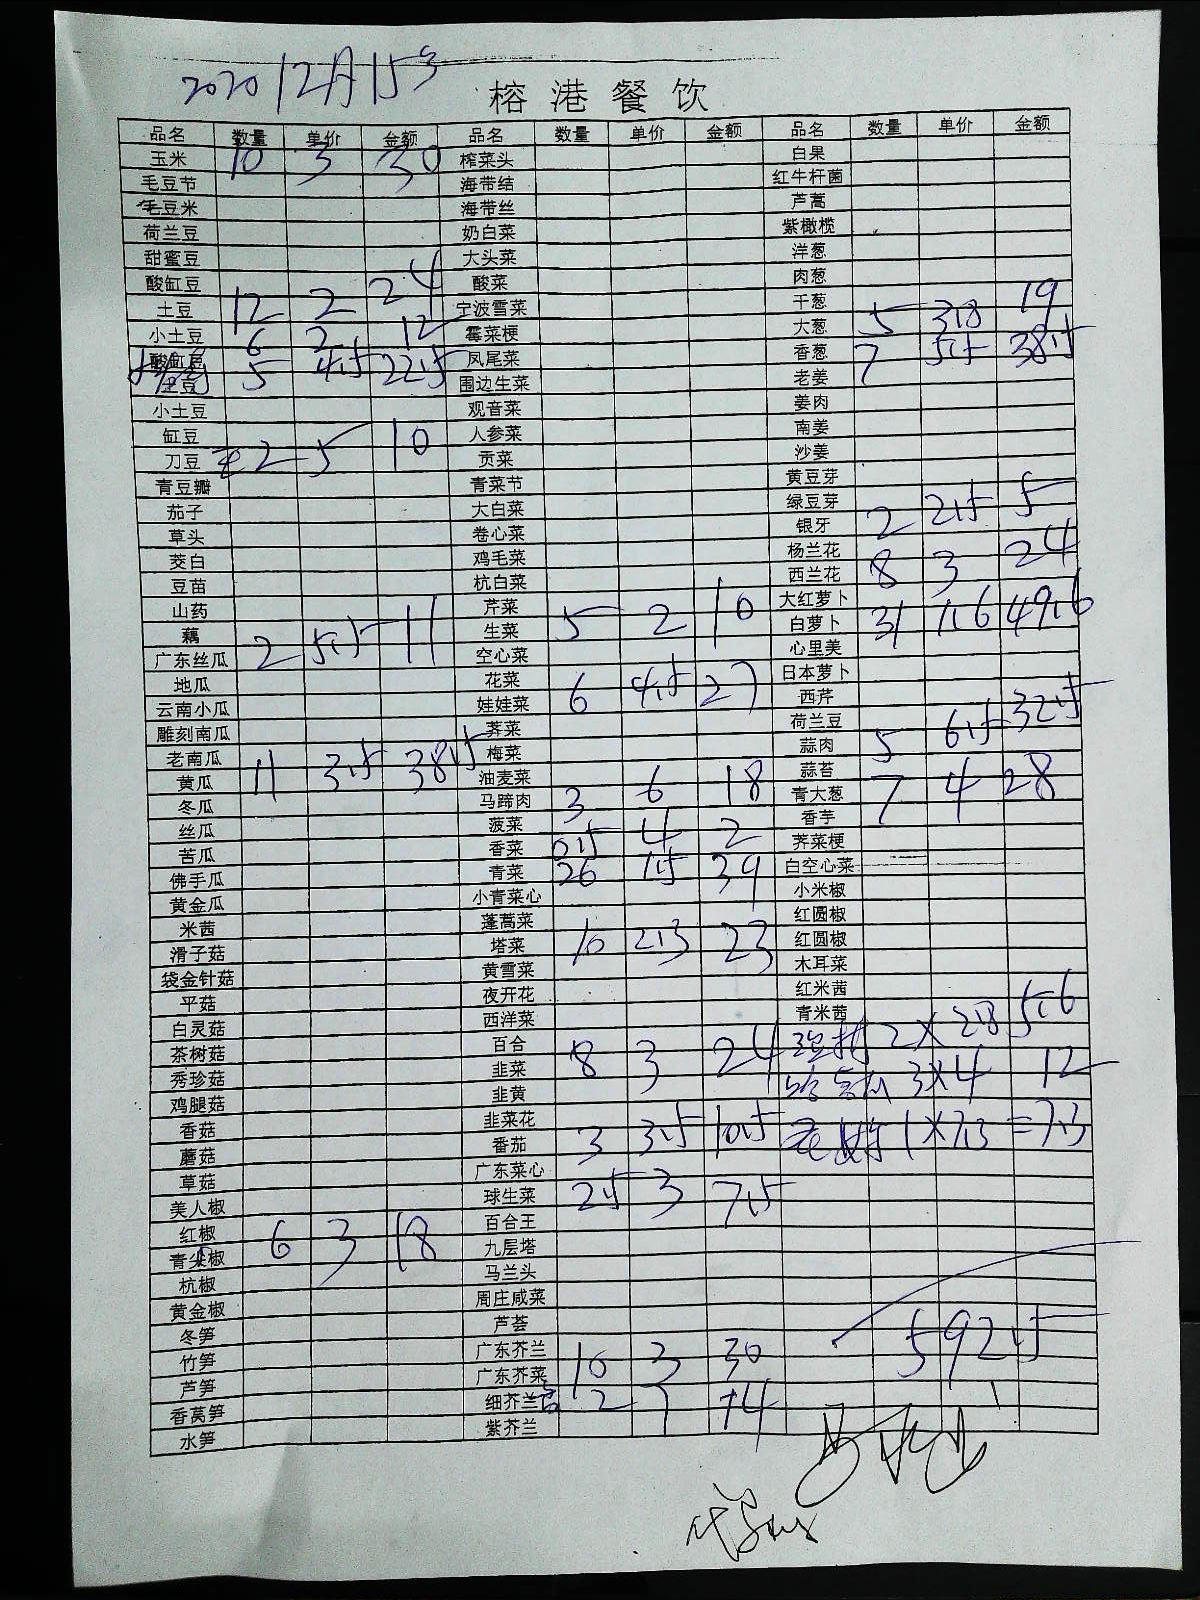 2020 12月15号
榕港餐饮
品名 数量 单价 金额 品名 数量 单价 金额 品名 数量 单价 金额
玉米 10 3 30 榨菜头 白果
毛豆节 海带结 红牛杆菌
毛豆米 海带丝 芦蒿
荷兰豆 奶白菜 紫橄榄
甜蜜豆 大头菜 洋葱
酸缸豆 酸菜 肉葱
土豆 12 2 24 宁波雪菜 干葱
小土豆 6 2 12 霉菜梗 大葱 5 3.8 19
酸缸豆 凤尾菜 香葱 7 5.5 38.5
土豆 5 4.5 22.5 围边生菜 老姜
小土豆 观音菜 姜肉
缸豆 人参菜 南姜
刀豆 2 5 10 贡菜 沙姜
青豆瓣 青菜节 黄豆芽
茄子 大白菜 绿豆芽
草头 卷心菜 银牙 2 2.5 5
茭白 鸡毛菜 杨兰花
豆苗 杭白菜 西兰花 8 3 24
山药 芹菜 大红萝卜
藕 生菜 5 2 10 白萝卜 31 1.6 49.6
广东丝瓜 2 5.5 11 空心菜 心里美
地瓜 花菜 日本萝卜
云南小瓜 娃娃菜 6 4.5 27 西芹
雕刻南瓜 荠菜 荷兰豆
老南瓜 梅菜 蒜肉 5 6.5 32.5
黄瓜 11 3.5 38.5 油麦菜 蒜苔
冬瓜 马蹄肉 3 6 18 青大葱 7 4 28
丝瓜 菠菜 香芋
苦瓜 香菜 0.5 4 2 荠菜梗
佛手瓜 青菜 26 1.5 39 白空心菜
黄金瓜 小青菜心 小米椒
米茜 蓬蒿菜 红圆椒
滑子菇 塔菜 10 2.3 23 红圆椒
袋金针菇 黄雪菜 木耳菜
平菇 夜开花 红米茜
白灵菇 西洋菜 青米茜
茶树菇 百合 2×2.8 5.6
秀珍菇 韭菜 8 3 24
鸡腿菇 韭黄 3×4 12
香菇 韭菜花
蘑菇 番茄 3 3.5 10.5 1×7.3=7.3
草菇 广东菜心
美人椒 球生菜 2.5 3 7.5
红椒 百合王
青尖椒 6 3 18 九层塔
杭椒 马兰头
黄金椒 周庄咸菜
冬笋 芦荟
竹笋 广东芥兰 592.5
芦笋 广东芥菜 10 3 30
香莴笋 细芥兰 2 7 14
水笋 紫芥兰